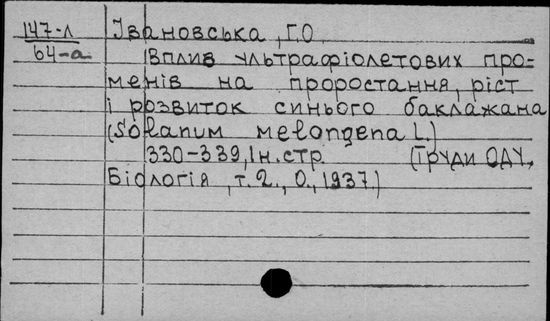 147-л Івановська, Г.О
64-а Вплив ультрафіолетових про-
менів на проростання, ріст
і розвиток синього баклажана
(Solanum melongena L.)
330-339, Ін. стр. (Труди ОДУ,
Біологія, т.2., О., 1937.)